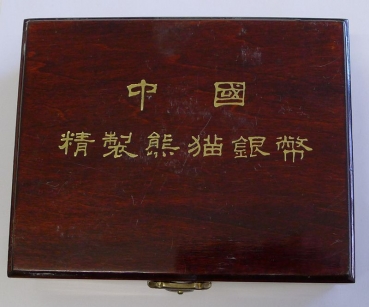 中國
精製熊猫銀幣